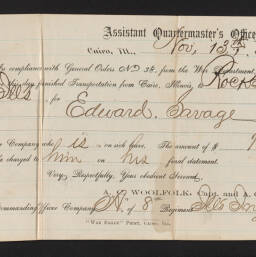 Assistant Quartermaster's Office
Cairo, Ill., Nov, 13th
compliance with General Orders No 34, from the War Department,
day furnished Transportation from Cairo, Illinois,
Ills, for
Edward Savage
Company who is on sick leave. The amount of $
charged to him on his final statement.
Very Respectfully, Your obedient Servant,
A. C. WOOLFOLK, Capt. and A.
Commanding Officer Company A, 8th Regiment Ills
"WAR EAGLE" PRINT, CAIRO, ILL.